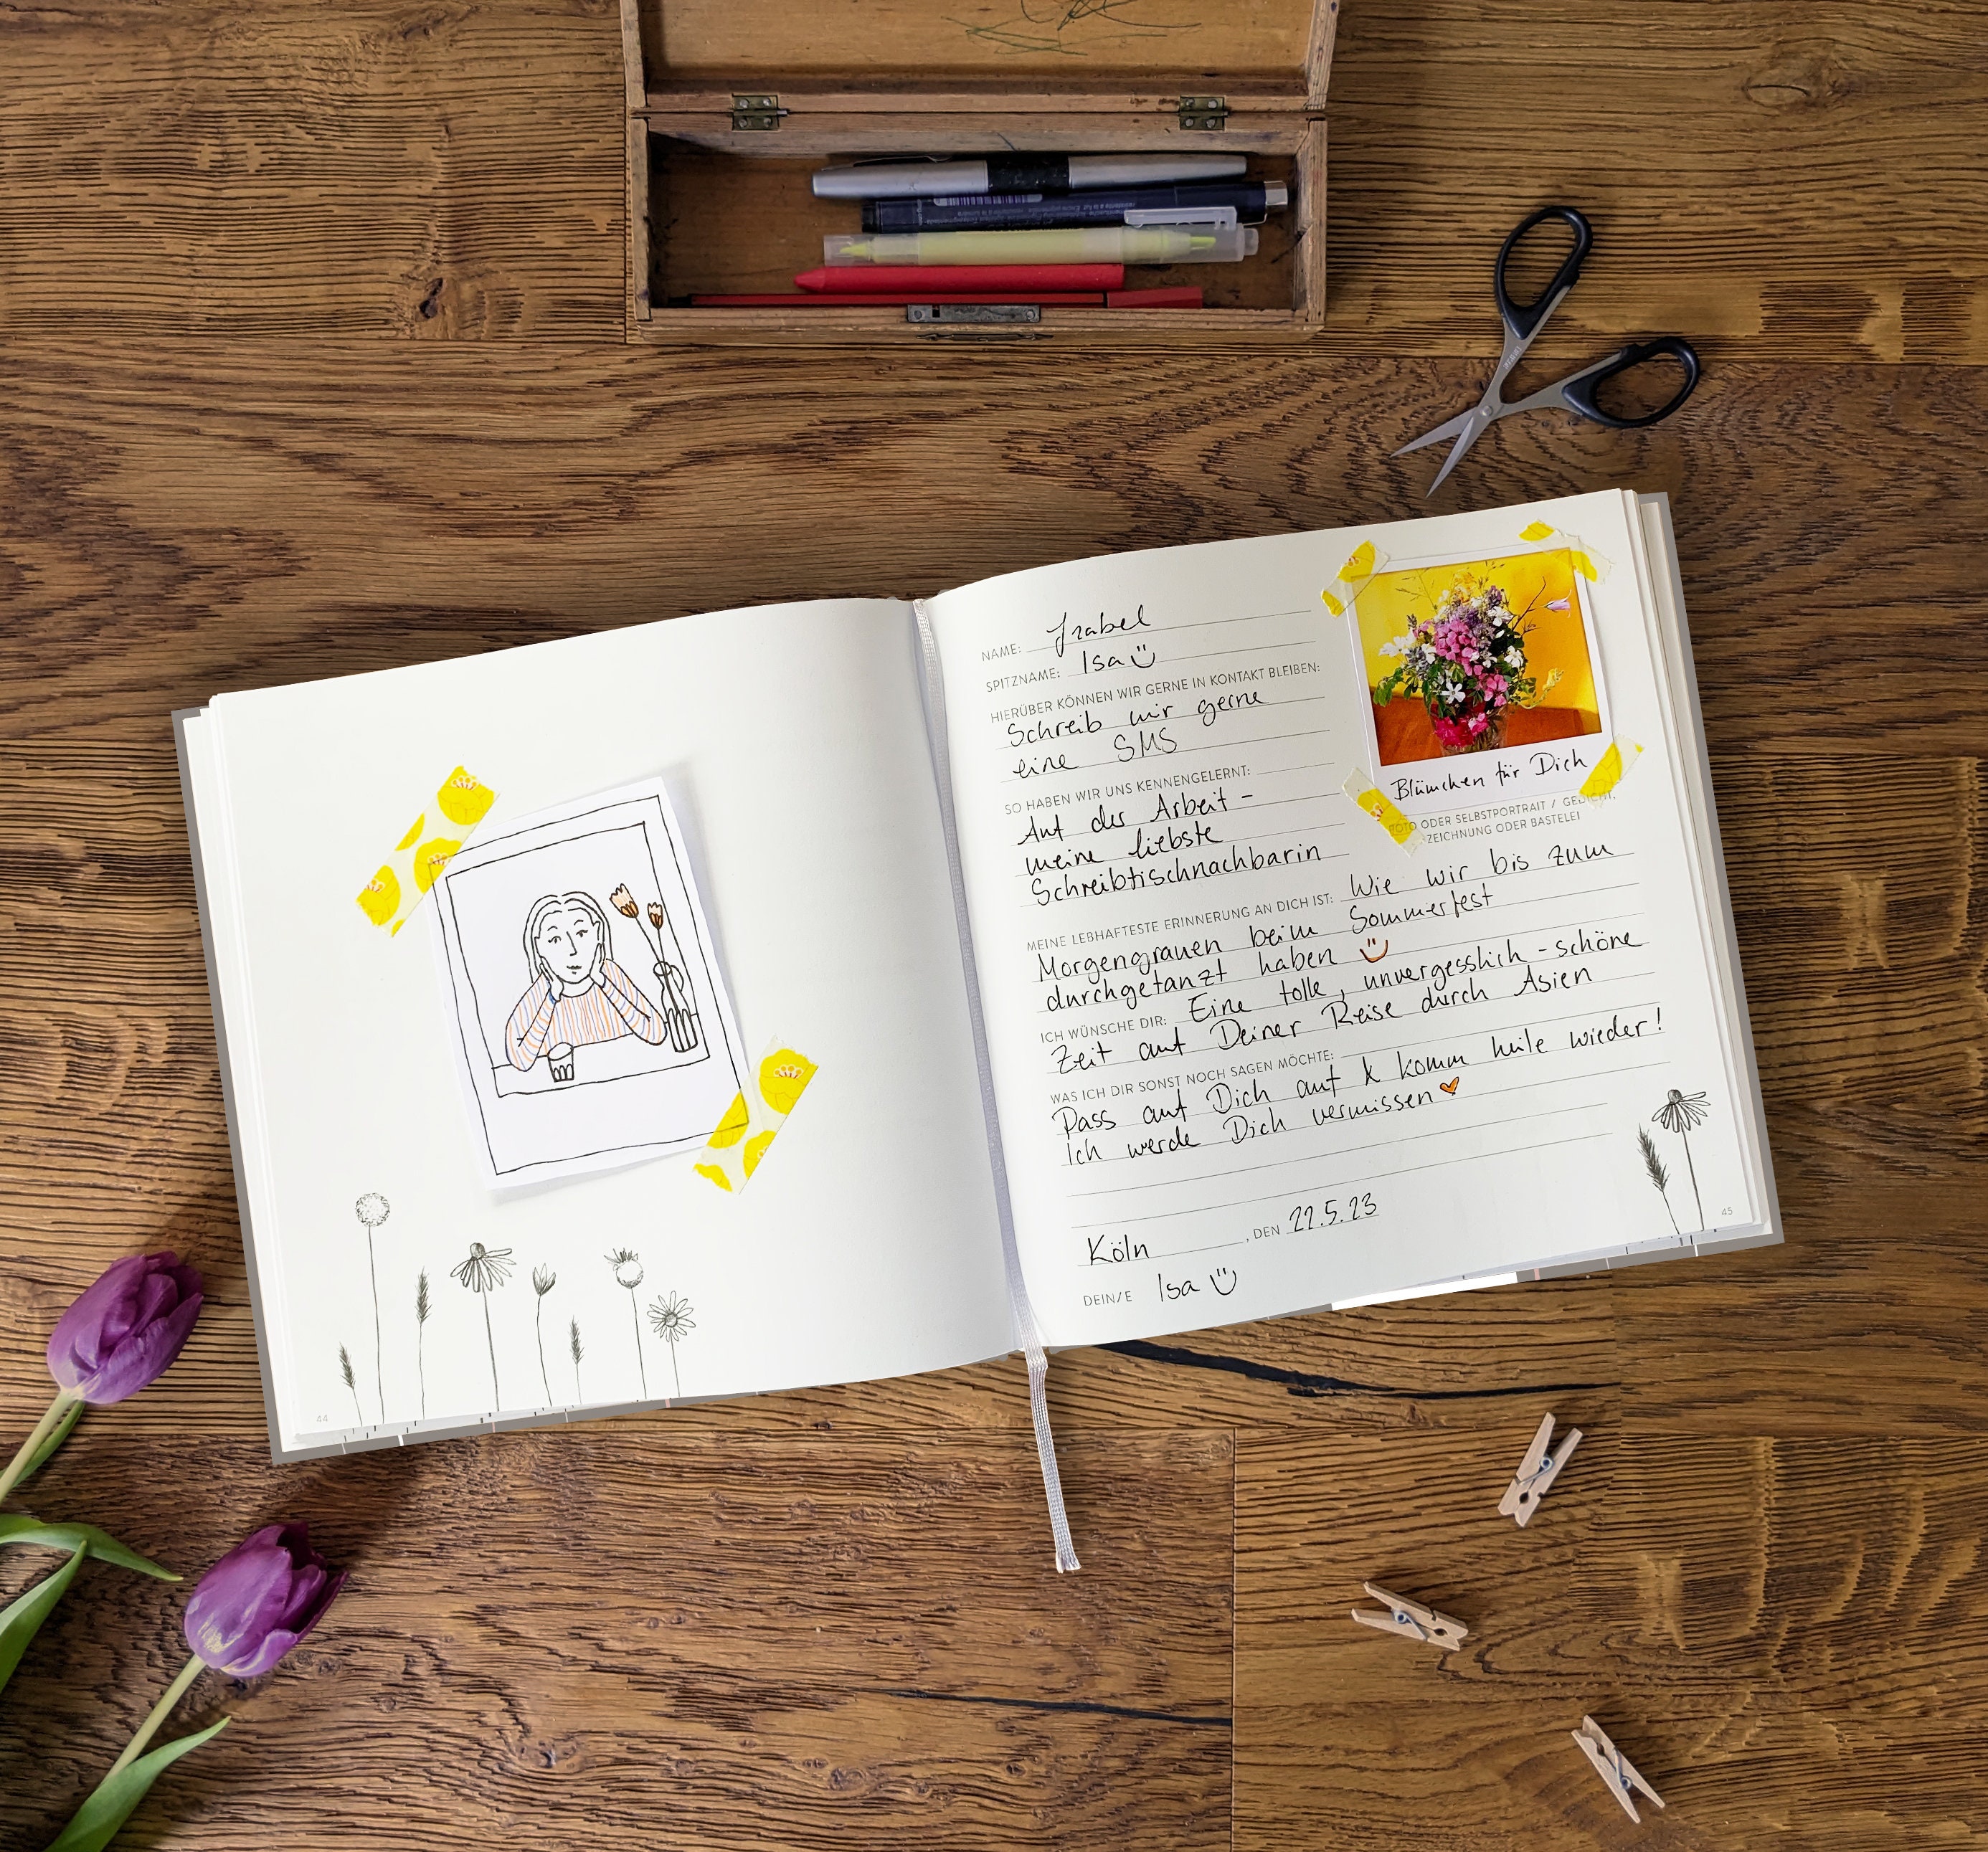 NAME: Isabel
SPITZNAME: Isa
HIERÜBER KÖNNEN WIR GERNE IN KONTAKT BLEIBEN:
Schreib mir gerne
eine SMS
SO HABEN WIR UNS KENNENGELERNT:
Auf der Arbeit -
meine liebste
Schreibtischnachbarin
Blümchen für Dich
FOTO ODER SELBSTPORTRAIT / GEDICHT,
ZEICHNUNG ODER BASTELEI
MEINE LEBHAFTESTE ERINNERUNG AN DICH IST: Wie wir bis zum
Morgengrauen beim Sommerfest
durchgetanzt haben
ICH WÜNSCHE DIR: Eine tolle, unvergesslich-schöne
Zeit auf Deiner Reise durch Asien
WAS ICH DIR SONST NOCH SAGEN MÖCHTE:
Pass auf Dich auf & komm heile wieder!
Ich werde Dich vermissen
Köln, DEN 22.5.23
DEIN/E Isa
44
45